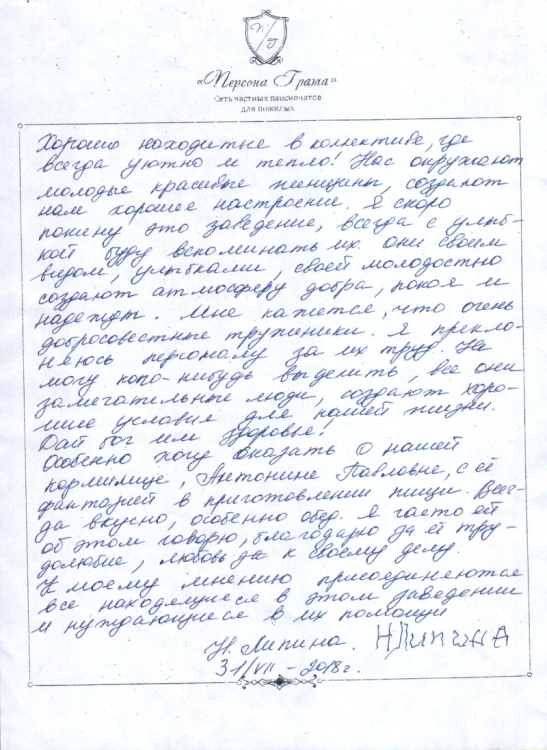 «Персона Грата»
Сеть частных пансионатов
для пожилых
Хорошо находиться в коллективе, где
всегда уютно и тепло! Нас окружают
молодые красивые женщины, создают
нам хорошее настроение. Я скоро
покину это заведение, всегда с улыб-
кой буду вспоминать их. они своим
видом, улыбками, своей молодостью
создают атмосферу добра, покоя и
надежды. Мне кажется, что очень
добросовестные труженики. Я прекло-
няюсь персоналу за их труд. Не
могу кого-нибудь выделить, все они
замечательные люди, создают хоро-
шие условия для нашей жизни.
Дай бог им здоровье!
Особенно хочу сказать о нашей
кормилице, Антонине Павловне, с её
фантазией в приготовлении пищи. Всег-
да вкусно, особенно обед. Я часто ей
об этом говорю, благодарю за её тру-
долюбие, любовь к своему делу.
К моему мнению присоединяются
все находящиеся в этом заведении
и нуждающиеся в их помощи
Н. Липина. Н Липина
31/VII – 2018г.